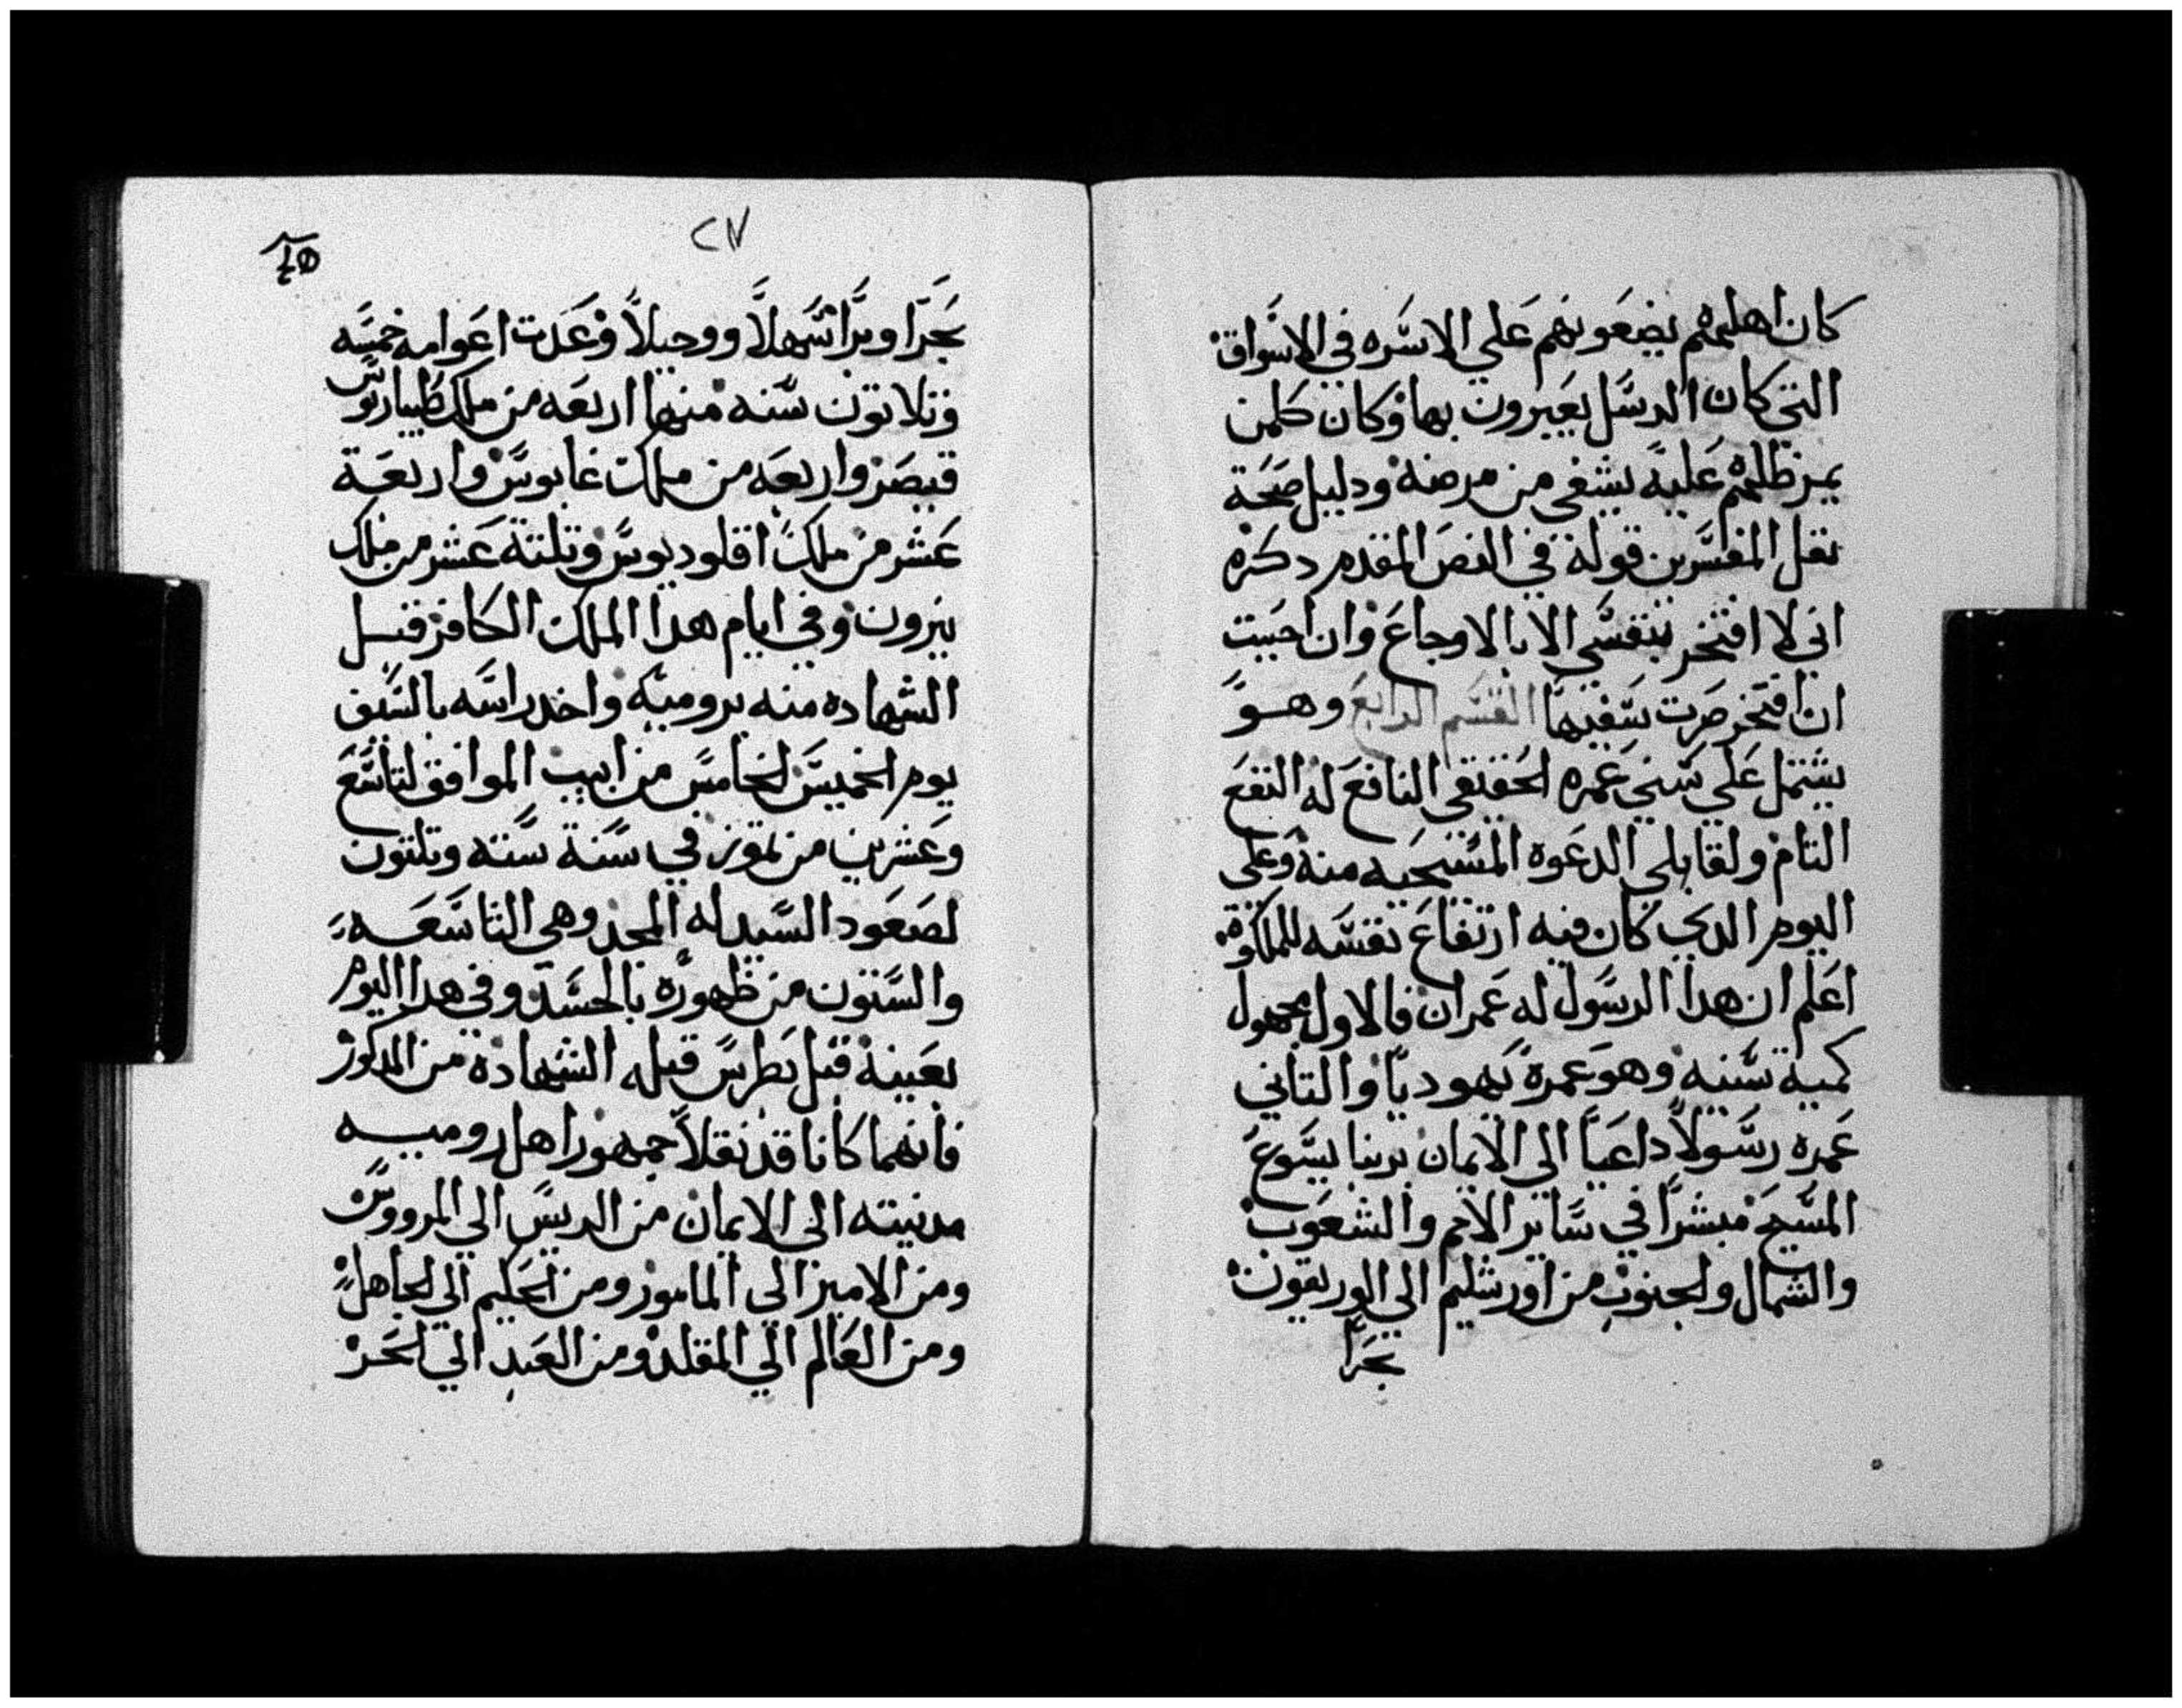 كان اهليهم يضعونهم علي الاسره في الاسواق
التي كان الرسل يعبرون بها وكان كلمن
يمر ظلهم عليه يشفي من مرضه ودليل صحة
نقل المفسرين قوله في الفص المقدم دكره
اني لا افتخر بنفسي الا بالاوجاع وان احببت
ان افتخر صرت سفيها القسم الرابع وهو
يشتمل علي سني عمره الحقيقي النافع له النفع
التام ولقابلي الدعوه المسيحيه منه وعلي
اليوم الدي كان فيه ارتفاع نفسه للملكوة
اعلم ان هدا الرسول له عمران فالاول مجهول
كمية سنيه وهو عمره يهوديا والتاني
عمره رسولا داعيا الي الايمان بربنا يسوع
المسيح مبشرا في ساير الامم والشعوب
والشمال والجنوب من اورشليم الي الوريقون
بحرا
٢٧
بحرا وبرا سهلا ووجبلا وعدت اعوامه خمسه
وتلاتون سنه منها اربعه من ملك طيباريوس
قيصر واربعه من ملك غايوس واربعة
عشر من ملك اقلوديوس وتلتة عشر من ملك
نيرون وفي ايام هدا الملك الكافر قبل
الشهاده منه بروميه واخد راسه بالسيف
يوم الخميس الخامس من ابيب الموافق لتاسع
وعشرين من تموز في سنة سته وتلتون
لصعود السيد له المجد وهي التاسعه
والستون من ظهوره بالجسد وفي هدا اليوم
بعينه قبل بطرس قبله الشهاده من المدكور
فانهما كانا قد نقلا جمهور اهل روميه
مدينته الي الايمان من الريس الي المرووس
ومن الامير الي المامور ومن الحليم الي الجاهل
ومن العالم الي المقلد ومن العبد الي الحر